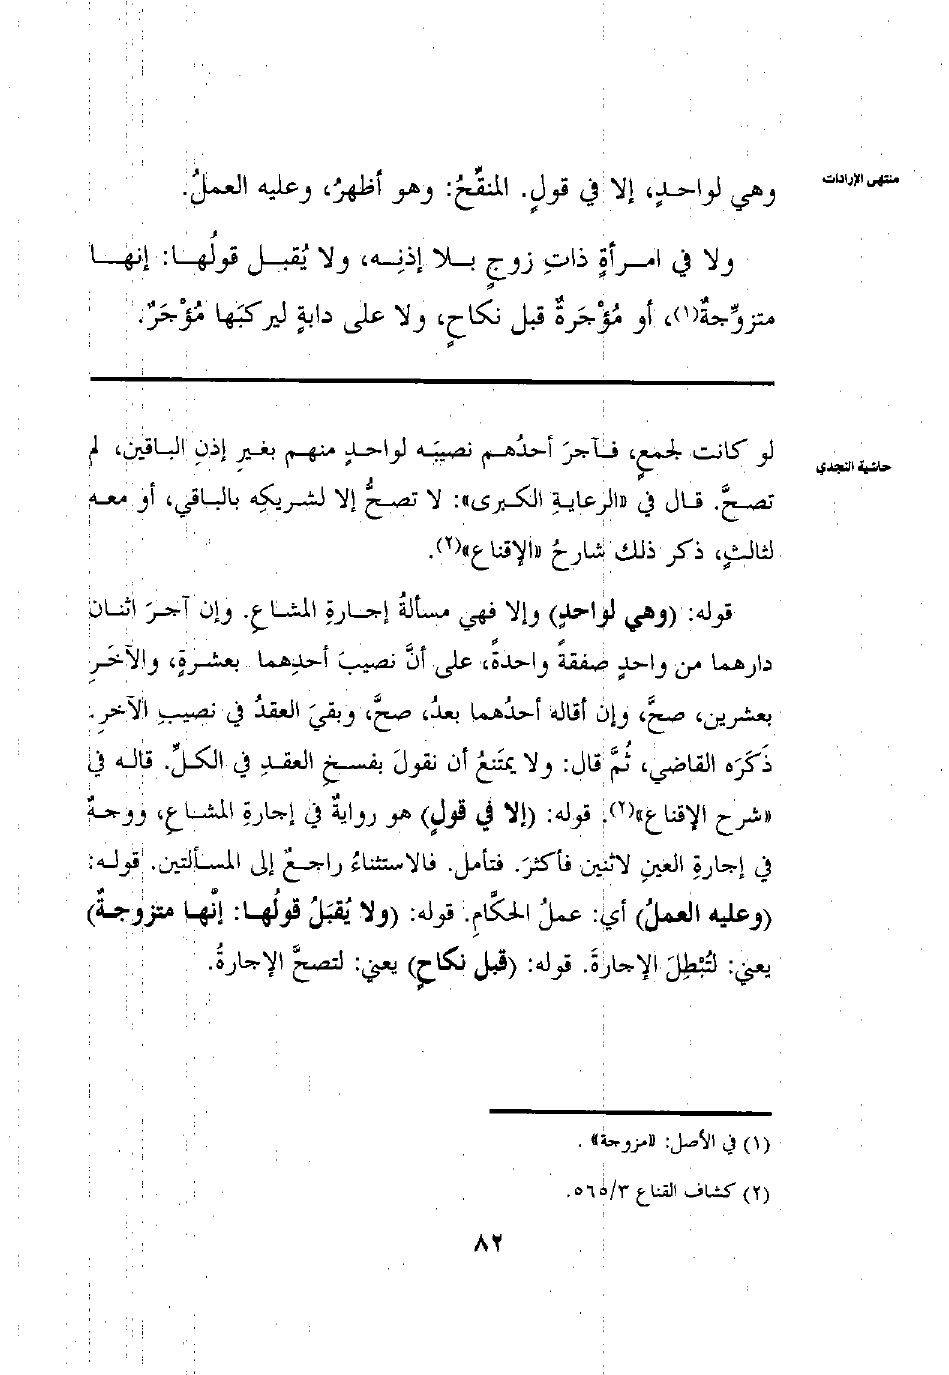 منتهى الإرادات
وهي لواحدٍ، إلا في قولٍ. المنقِّحُ: وهو أظهرُ، وعليه العملُ.
ولا في امـرأةٍ ذاتِ زوجٍ بـلا إذنِـه، ولا يُقبـل قولُهـا: إنهـا
متزوِّجةٌ(١)، أو مُؤْجَرةٌ قبل نكاحٍ، ولا على دابةٍ ليركبَها مُؤْجَرٌ.
حاشية النجدي
لو كانت لجمعٍ، فـآجرَ أحدُهـم نصيبَـه لواحـدٍ منهـم بغيرِ إذنِ الباقين، لم
تصـحَّ. قـال في «الرعايـةِ الكـبرى»: لا تصـحُّ إلا لشريكِه بالبـاقي، أو معـه
لثالثٍ، ذكر ذلك شارحُ «الإقناع»(٢).
قوله: (وهي لواحدٍ) وإلا فهي مسألةُ إجـارةِ المشـاعِ. وإن آجـرَ اثنـان
دارهما من واحدٍ صفقةً واحدةً، على أنَّ نصيبَ أحدِهمـا بعشـرةٍ، والآخَـرِ
بعشرين، صحَّ، وإن أقاله أحدُهما بعدُ، صحَّ، وبقيَ العقدُ في نصيبِ الآخرِ.
ذَكَرَه القاضي، ثُمَّ قال: ولا يمتَنعُ أن نقولَ بفسـخِ العقـدِ في الكـلِّ. قالـه في
«شرح الإقناع»(٢). قوله: (إلا في قولٍ) هو روايةٌ في إجارةِ المشـاعِ، ووجـهٌ
في إجارةِ العينِ لاثنين فأكثرَ. فتأمل. فالاستثناءُ راجعٌ إلى المسألتين. قولـه:
(وعليه العملُ) أي: عملُ الحكَّامِ. قوله: (ولا يُقبَلُ قولُهـا: إنَّها متزوجـةٌ)
يعني: لتُبْطِلَ الإجارةَ. قوله: (قبل نكاحٍ) يعني: لتصحَّ الإجارةُ.
(١) في الأصل: «مزوجة» .
(٢) كشاف القناع ٥٦٥/٣.
٨٢